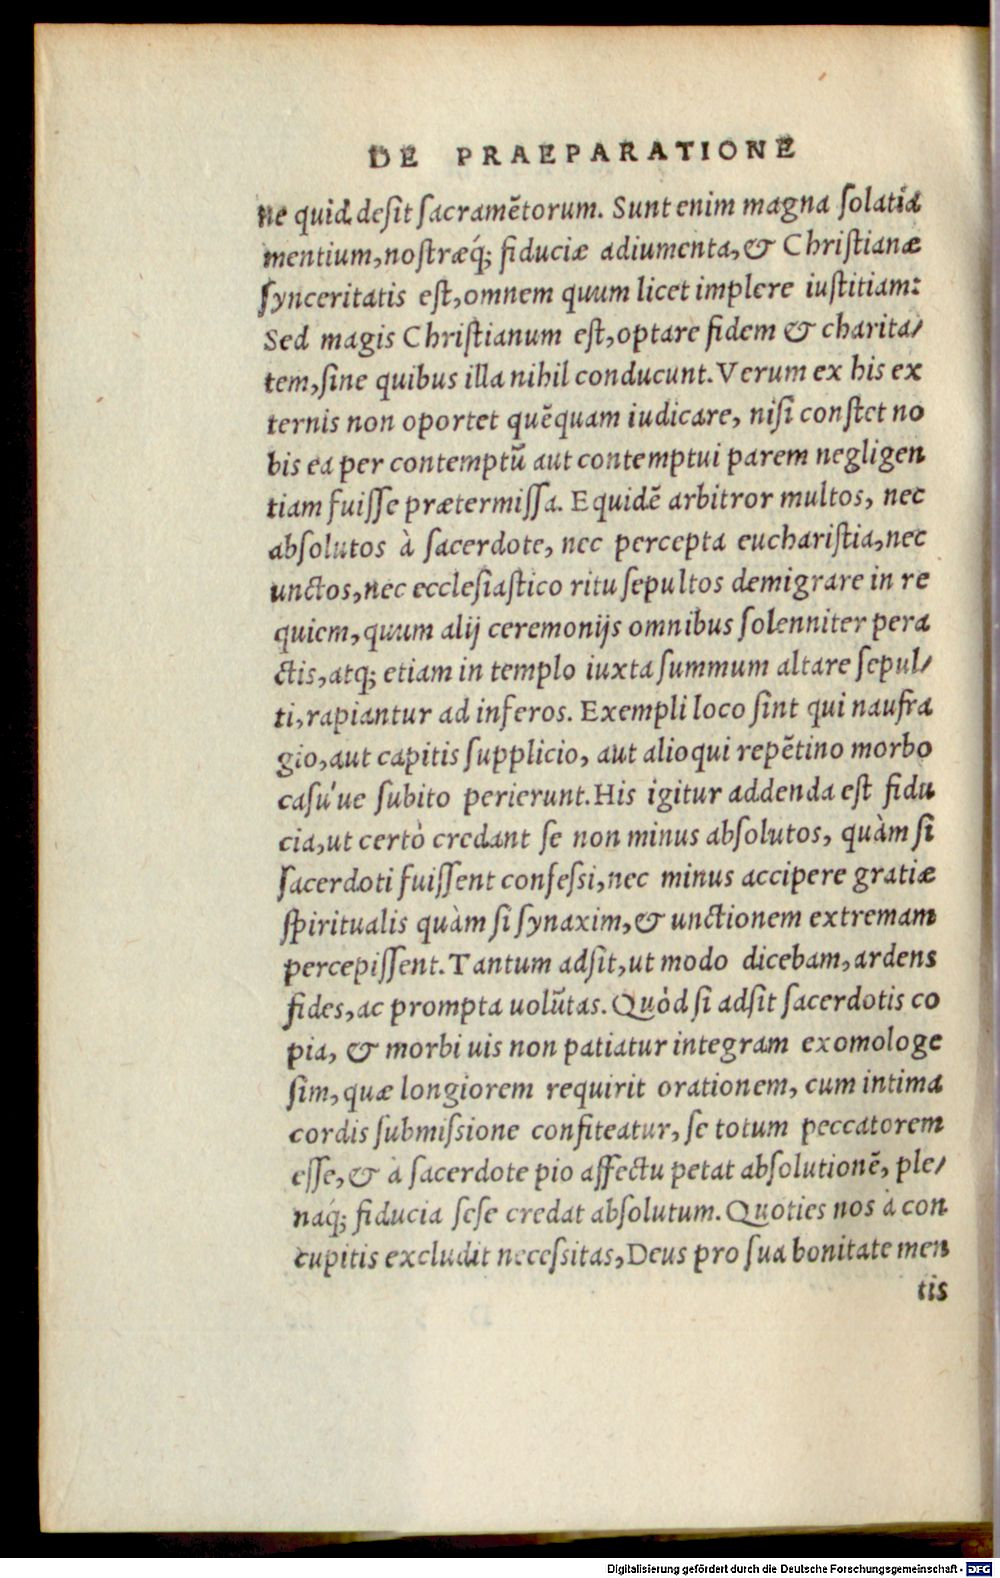 DE PRAEPARATIONE
ne quid desit sacramētorum. Sunt enim magna solatia
mentium, nostræq́; fiduciæ adiumenta, & Christianæ
synceritatis est, omnem quum licet implere iustitiam:
Sed magis Christianum est, optare fidem & charita/
tem, sine quibus illa nihil conducunt. Verum ex his ex
ternis non oportet quēquam iudicare, nisi constet no
bis ea per contemptū aut contemptui parem negligen
tiam fuisse prætermissa. Equidē arbitror multos, nec
absolutos à sacerdote, nec percepta eucharistia, nec
unctos, nec ecclesiastico ritu sepultos demigrare in re
quiem, quum alij ceremonijs omnibus solenniter pera
ctis, atq; etiam in templo iuxta summum altare sepul/
ti, rapiantur ad inferos. Exempli loco sint qui naufra
gio, aut capitis supplicio, aut alioqui repētino morbo
casu'ue subito perierunt. His igitur addenda est fidu
cia, ut certò credant se non minus absolutos, quàm si
sacerdoti fuissent confessi, nec minus accipere gratiæ
spiritualis quàm si synaxim, & unctionem extremam
percepissent. Tantum adsit, ut modo dicebam, ardens
fides, ac prompta uolūtas. Quòd si adsit sacerdotis co
pia, & morbi uis non patiatur integram exomologe
sim, quæ longiorem requirit orationem, cum intima
cordis submissione confiteatur, se totum peccatorem
esse, & à sacerdote pio affectu petat absolutionē, ple/
náq́; fiducia sese credat absolutum. Quoties nos à con
cupitis excludit necessitas, Deus pro sua bonitate men
tis
Digitalisierung gefördert durch die Deutsche Forschungsgemeinschaft - DFG